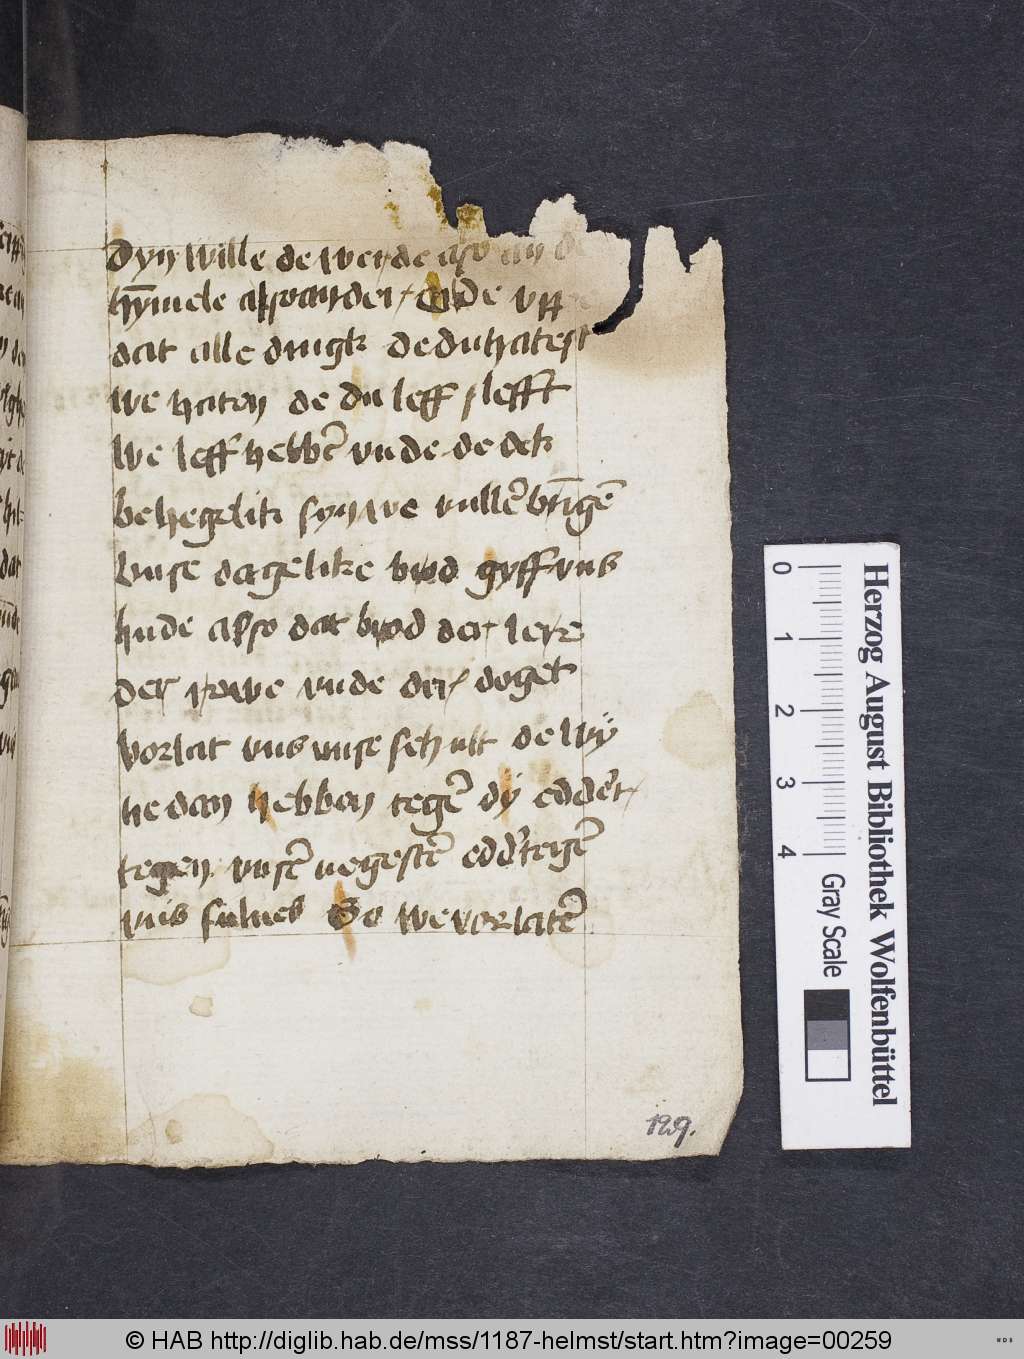 Dyn wille de werde also an de
hȳmele also an der erde vp
dat alle dingk de du hatest
we haten de du leff hefft
we leff hebbē vnde de dek
behegelik syn we vullēbrīgē
vnse dagelike brod gyff vns
hude also dat brod der lere
der rowe vnde der doget
vorlat vns vnse schult de wÿ
he dan hebben tegē dÿ edder
tegen vnsē negestē eddˀ teigē
vns sulues So we vorlatē
129.
Herzog August Bibliothek Wolfenbüttel
0 1 2 3 4
Gray Scale
© HAB http://diglib.hab.de/mss/1187-helmst/start.htm?image=00259
WDB